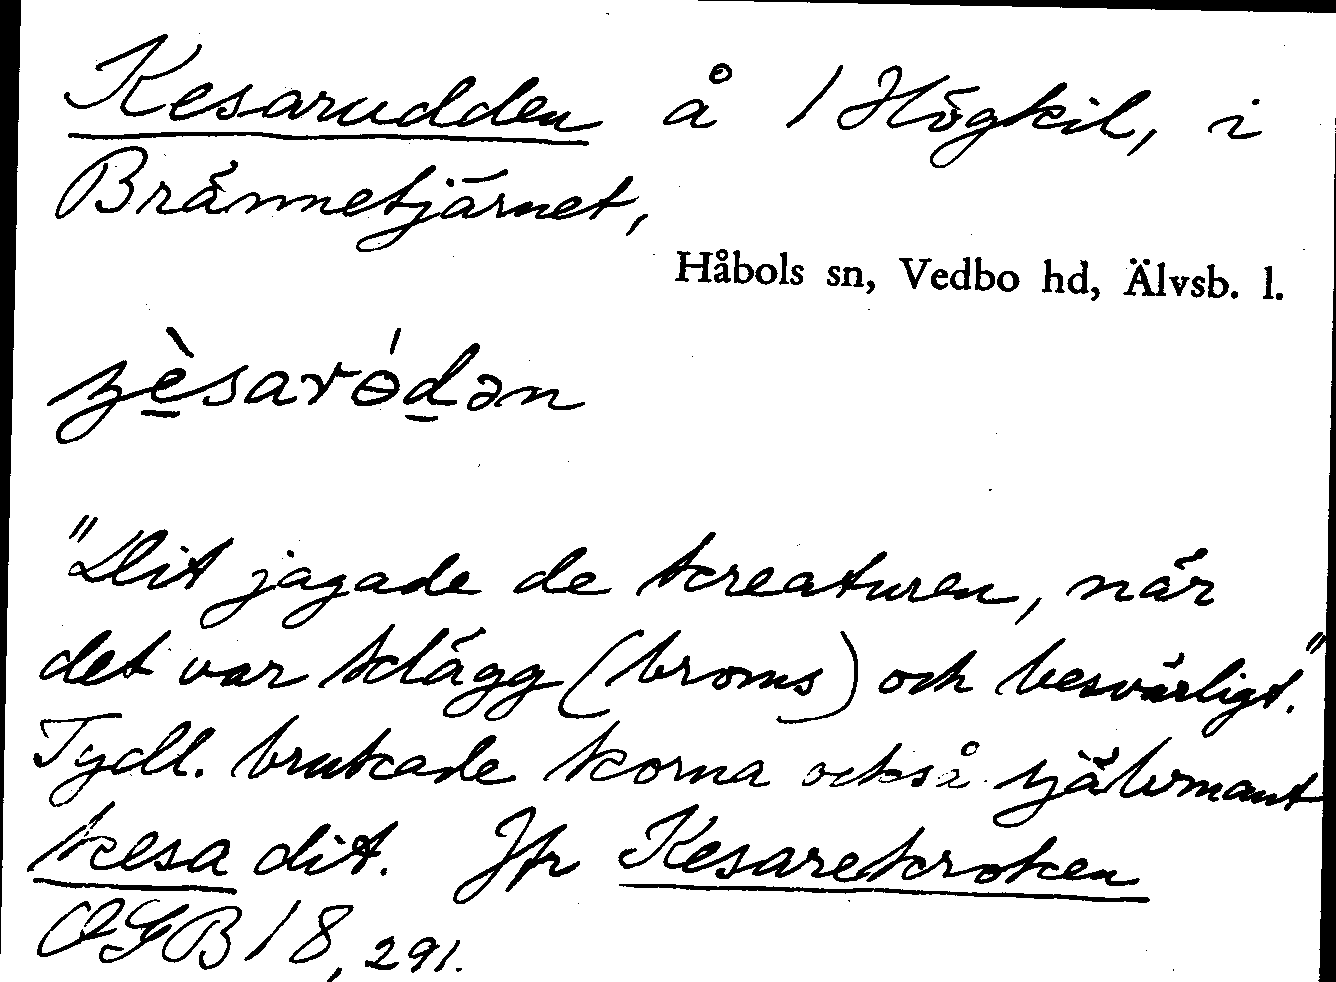 Kesarudden å 1 Högkil, i
Brännetjärnet,
Håbols sn, Vedbo hd, Älvsb. l.
"Dit jagade de kreaturen, när
det var klägg (broms) och besvärligt."
Tydl. brukade korna också självmant
kesa dit. Jfr Kesarekroken
OGB 18, 291.